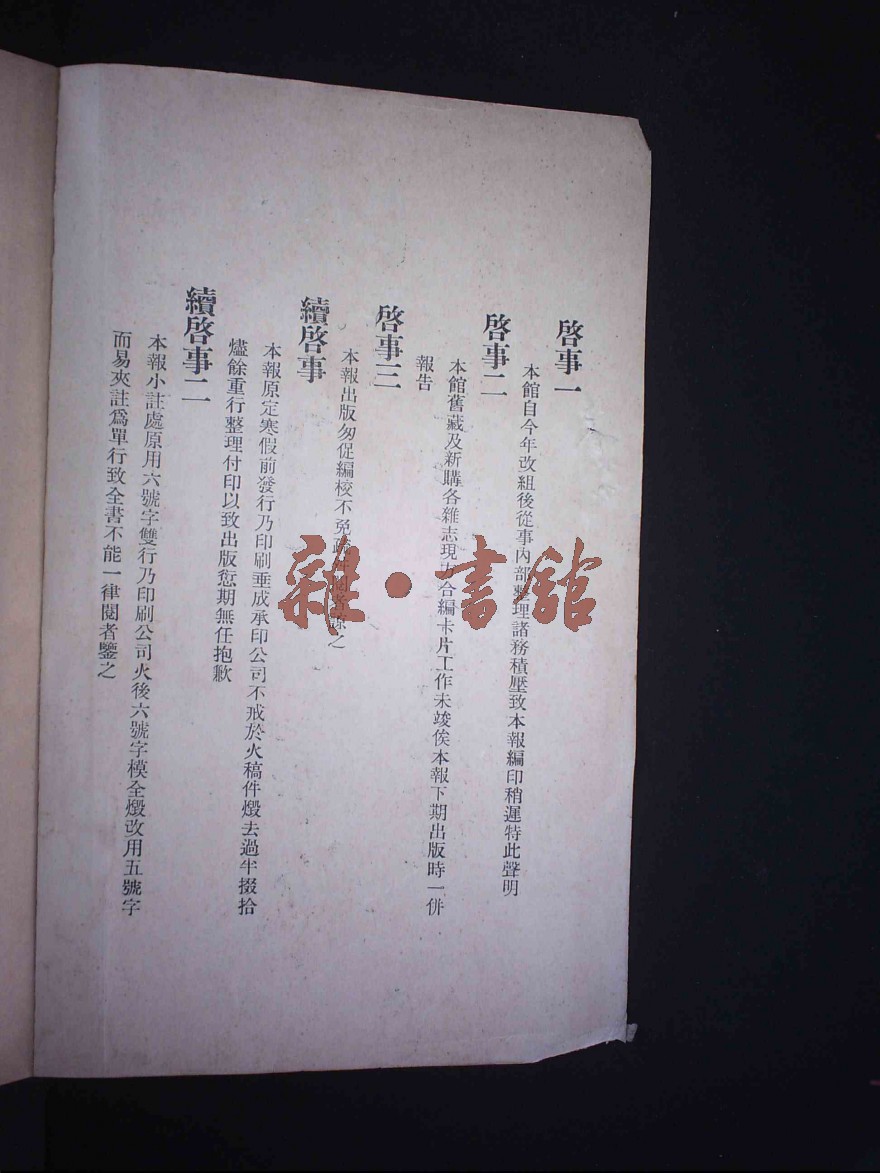 啓事一
本館自今年改組後從事內部整理諸務積壓致本報編印稍遲特此聲明
啓事二
本館舊藏及新購各雜志現方合編卡片工作未竣俟本報下期出版時一併
報告
啓事三
本報出版匆促編校不免閱者諒之
續啓事
本報原定寒假前發行乃印刷垂成承印公司不戒於火稿件燬去過半掇拾
燼餘重行整理付印以致出版愆期無任抱歉
續啓事二
本報小註處原用六號字雙行乃印刷公司火後六號字模全燬改用五號字
而易夾註爲單行致全書不能一律閱者鑒之
雜·書館